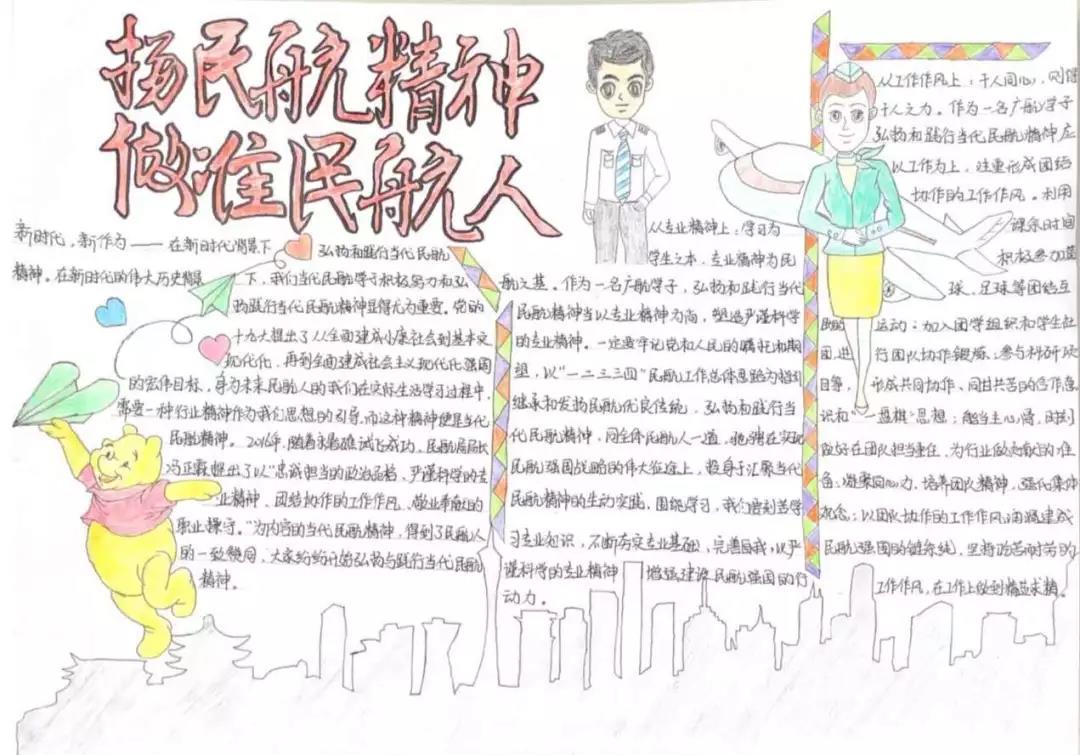 扬民航精神
做准民航人
新时代，新作为——在新时代背景下 弘扬和践行当代民航
精神。在新时代的伟大历史背景下，我们当代民航学子积极努力和弘
扬践行当代民航精神显得尤为重要。党的
十九大提出了从全面建成小康社会到基本实
现代化，再到全面建成社会主义现代化强国
的宏伟目标，身为未来民航人的我们在实际生活学习过程中，
需要一种行业精神作为我们思想的引导，而这种精神便是当代
民航精神。2016年，随着 试飞成功，民航局局长
冯正霖提出了以“忠诚担当的政治品格，严谨科学的专
业精神，团结协作的工作作风，敬业奉献的
职业操守。”为内容的当代民航精神，得到了民航人
的一致赞同，大家纷纷开始弘扬与践行当代民航
精神。
从专业精神上：学习为
学生之本，专业精神为民
航之基。作为一名广航学子，弘扬和践行当代
民航精神当以专业精神为向，塑造严谨科学
的专业精神。一定要牢记党和人民的嘱托和期
望，以“一二三三四”民航工作总体思路为指引
继承和发扬民航优良传统，弘扬和践行当
代民航精神，同全体民航人一道，驰骋在实现
民航强国战略的伟大征途上，投身于汇聚当代
民航精神的生动实践，围绕学习，我们应刻苦学
习专业知识，不断夯实专业基础，完善自我，以严
谨科学的专业精神 增强建设民航强国的行
动力。
从工作作风上：千人同心，则得
千人之力。作为一名广航学子
弘扬和践行当代民航精神应
以工作为上，注重形成团结
协作的工作作风。利用
课余时间
积极参加篮
球、足球等团结互
助的运动；加入团学组织和学生社
团，进行团队协作锻炼；参与科研项
目等，形成共同协作、同甘共苦的合作意
识和“一盘棋”思想；能当主心骨，时刻
做好在团队担当重任，为行业做贡献的准
备；凝聚向心力，培养团队精神，强化集体
观念；以团队协作的工作作风 建成
民航强国的 ，坚持吃苦耐劳的
工作作风，在工作上做到精益求精。